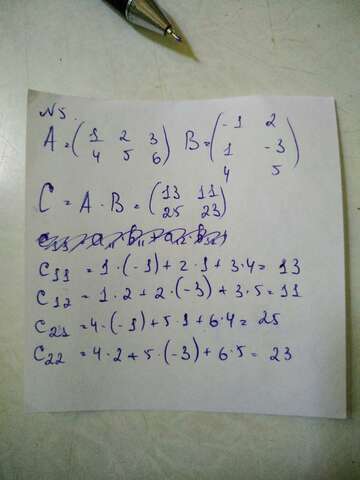 N5.
A = ( 1 2 3 ) B = ( -1 2
4 5 6 1 -3
4 5 )
C = A · B = ( 13 11
25 23 )
C11 = 1·(-1)+2·1+3·4= 13
C12 = 1·2+2·(-3)+3·5=11
C21 =4·(-1)+5·1+6·4=25
C22 =4·2+5·(-3)+6·5= 23